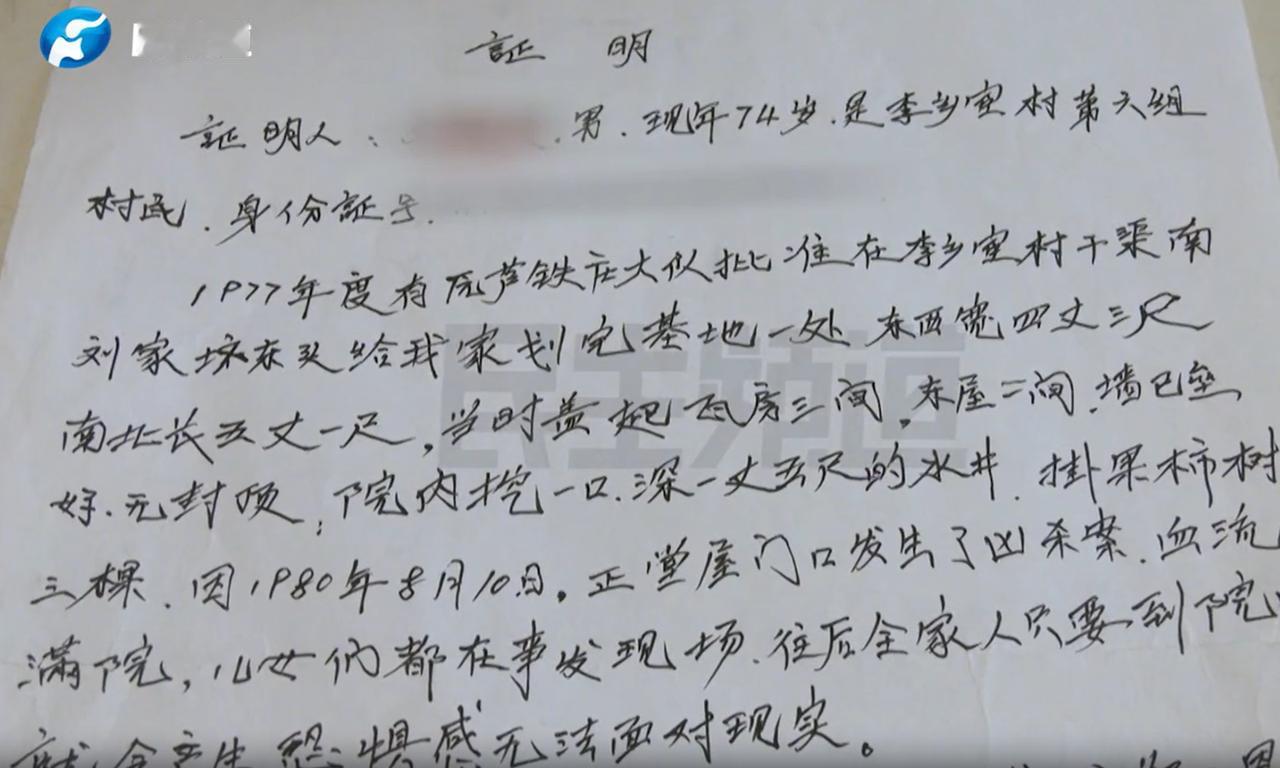 証 明
証明人：男．现年74岁．是李乡宦村第六组
村民．身份証号．
1977年度有原芦铁庄大队批准在李乡宦村干渠南
刘家坟东头给我家划宅基地一处 东西宽四丈三尺
南北长五丈一尺，当时盖起瓦房三间，东屋二间．墙已垒
好．无封顶；院内挖一口．深一丈五尺的水井．掛果柿树
三棵．因1980年8月10日。正堂屋门口发生了凶杀案．血流
满院，儿女们都在事发现场．往后全家人只要到院
就会产生恐惧感无法面对现实。
民生频道